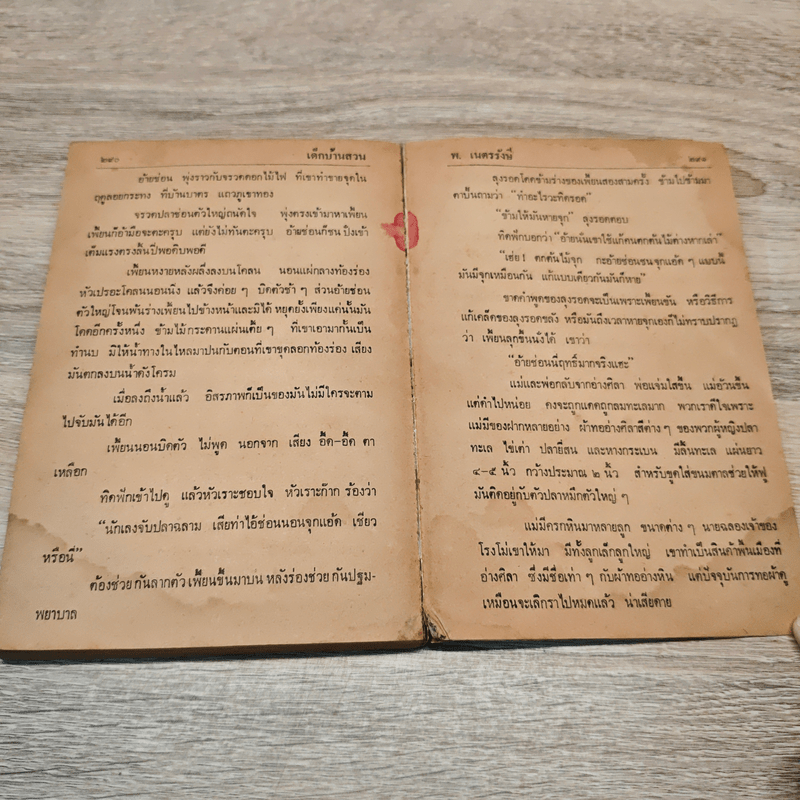 ๒๙๐ เด็กบ้านสวน
อ้ายช่อน พุ่งราวกับจรวดดอกไม้ไฟ ที่เขาทำขายจุดใน
ฤดูลอยกระทง ที่บ้านบาตร แถวภูเขาทอง
จรวดปลาช่อนตัวใหญ่ถนัดใจ พุ่งตรงเข้ามาหาเพี้ยน
เพี้ยนก็อ้ามือจะตะครุบ แต่ยังไม่ทันตะครุบ อ้ายช่อนก็ชนปึงเข้า
เต็มแรงตรงลิ้นปี่พอดิบพอดี
เพี้ยนหงายหลังผลึ่งลงบนโคลน นอนแผ่กลางท้องร่อง
หัวเปรอะโคลนนอนนิ่ง แล้วจึงค่อย ๆ บิดตัวช้า ๆ ส่วนอ้ายช่อน
ตัวใหญ่โจนพ้นร่างเพี้ยนไปข้างหน้าและมิได้ หยุดยั้งเพียงแค่นั้นมัน
โดดอีกครั้งหนึ่ง ข้ามไม้กระดานแผ่นเตี้ย ๆ ที่เขาเอามากั้นเป็น
ทำนบ มิให้น้ำทางในไหลมาปนกับตอนที่เขาขุดลอกท้องร่อง เสียง
มันตกลงบนน้ำดังโครม
เมื่อลงถึงน้ำแล้ว อิสรภาพก็เป็นของมันไม่มีใครจะตาม
ไปจับมันได้อีก
เพี้ยนนอนบิดตัว ไม่พูด นอกจาก เสียง อี๊ด-อี๊ด ตา
เหลือก
ทิดพักเข้าไปดู แล้วหัวเราะชอบใจ หัวเราะก๊าก ร้องว่า
“นักเลงจับปลาฉลาม เสียท่าไอ้ช่อนนอนจุกแอ้ด เชียว
หรือนี่”
ต้องช่วยกันลากตัวเพี้ยนขึ้นมาบน หลังร่องช่วยกันปฐม-
พยาบาล
พ. เนตรรังษี ๒๙๑
ลุงรอดโดดข้ามร่างของเพี้ยนสองสามครั้ง ข้ามไปข้ามมา
ตาปั้นถามว่า “ทำอะไรวะทิดรอด”
“ข้ามให้มันหายจุก” ลุงรอดตอบ
ทิดพักบอกว่า “อ้ายนั่นเขาใช้แก้คนตกต้นไม้ต่างหากเล่า”
“เฮ่ย! ตกต้นไม้จุก กะอ้ายช่อนชนจุกแอ้ด ๆ แบบนี้
มันมีจุกเหมือนกัน แก้แบบเดียวกันมันก็หาย”
ขาดคำพูดของลุงรอดจะเป็นเพราะเพี้ยนขัน หรือวิธีการ
แก้เคล็ดของลุงรอดขลัง หรือมันถึงเวลาหายจุกเองก็ไม่ทราบปรากฏ
ว่า เพี้ยนลุกขึ้นนั่งได้ เขาว่า
“อ้ายช่อนนี่ฤทธิ์มากจริงแฮะ”
แม่และพ่อกลับจากอ่างศิลา พ่อแจ่มใสขึ้น แม่อ้วนขึ้น
แต่ดำไปหน่อย คงจะถูกแดดถูกลมทะเลมาก พวกเราดีใจเพราะ
แม่มีของฝากหลายอย่าง ผ้าทออ่างศิลาสีต่าง ๆ ของพวกผู้หญิงปลา
ทะเล ไข่เต่า ปลายี่สน และหางกระเบน มีลิ้นทะเล แผ่นยาว
๔-๕ นิ้ว กว้างประมาณ ๒ นิ้ว สำหรับขูดใส่ขนมตาลช่วยให้ฟู
มันติดอยู่กับตัวปลาหมึกตัวใหญ่ ๆ
แม่มีครกหินมาหลายลูก ขนาดต่าง ๆ นายฉลองเจ้าของ
โรงโม่เขาให้มา มีทั้งลูกเล็กลูกใหญ่ เขาทำเป็นสินค้าพื้นเมืองที่
อ่างศิลา ซึ่งมีชื่อเท่า ๆ กับผ้าทออ่างหิน แต่ปัจจุบันการทอผ้าดู
เหมือนจะเลิกราไปหมดแล้ว น่าเสียดาย